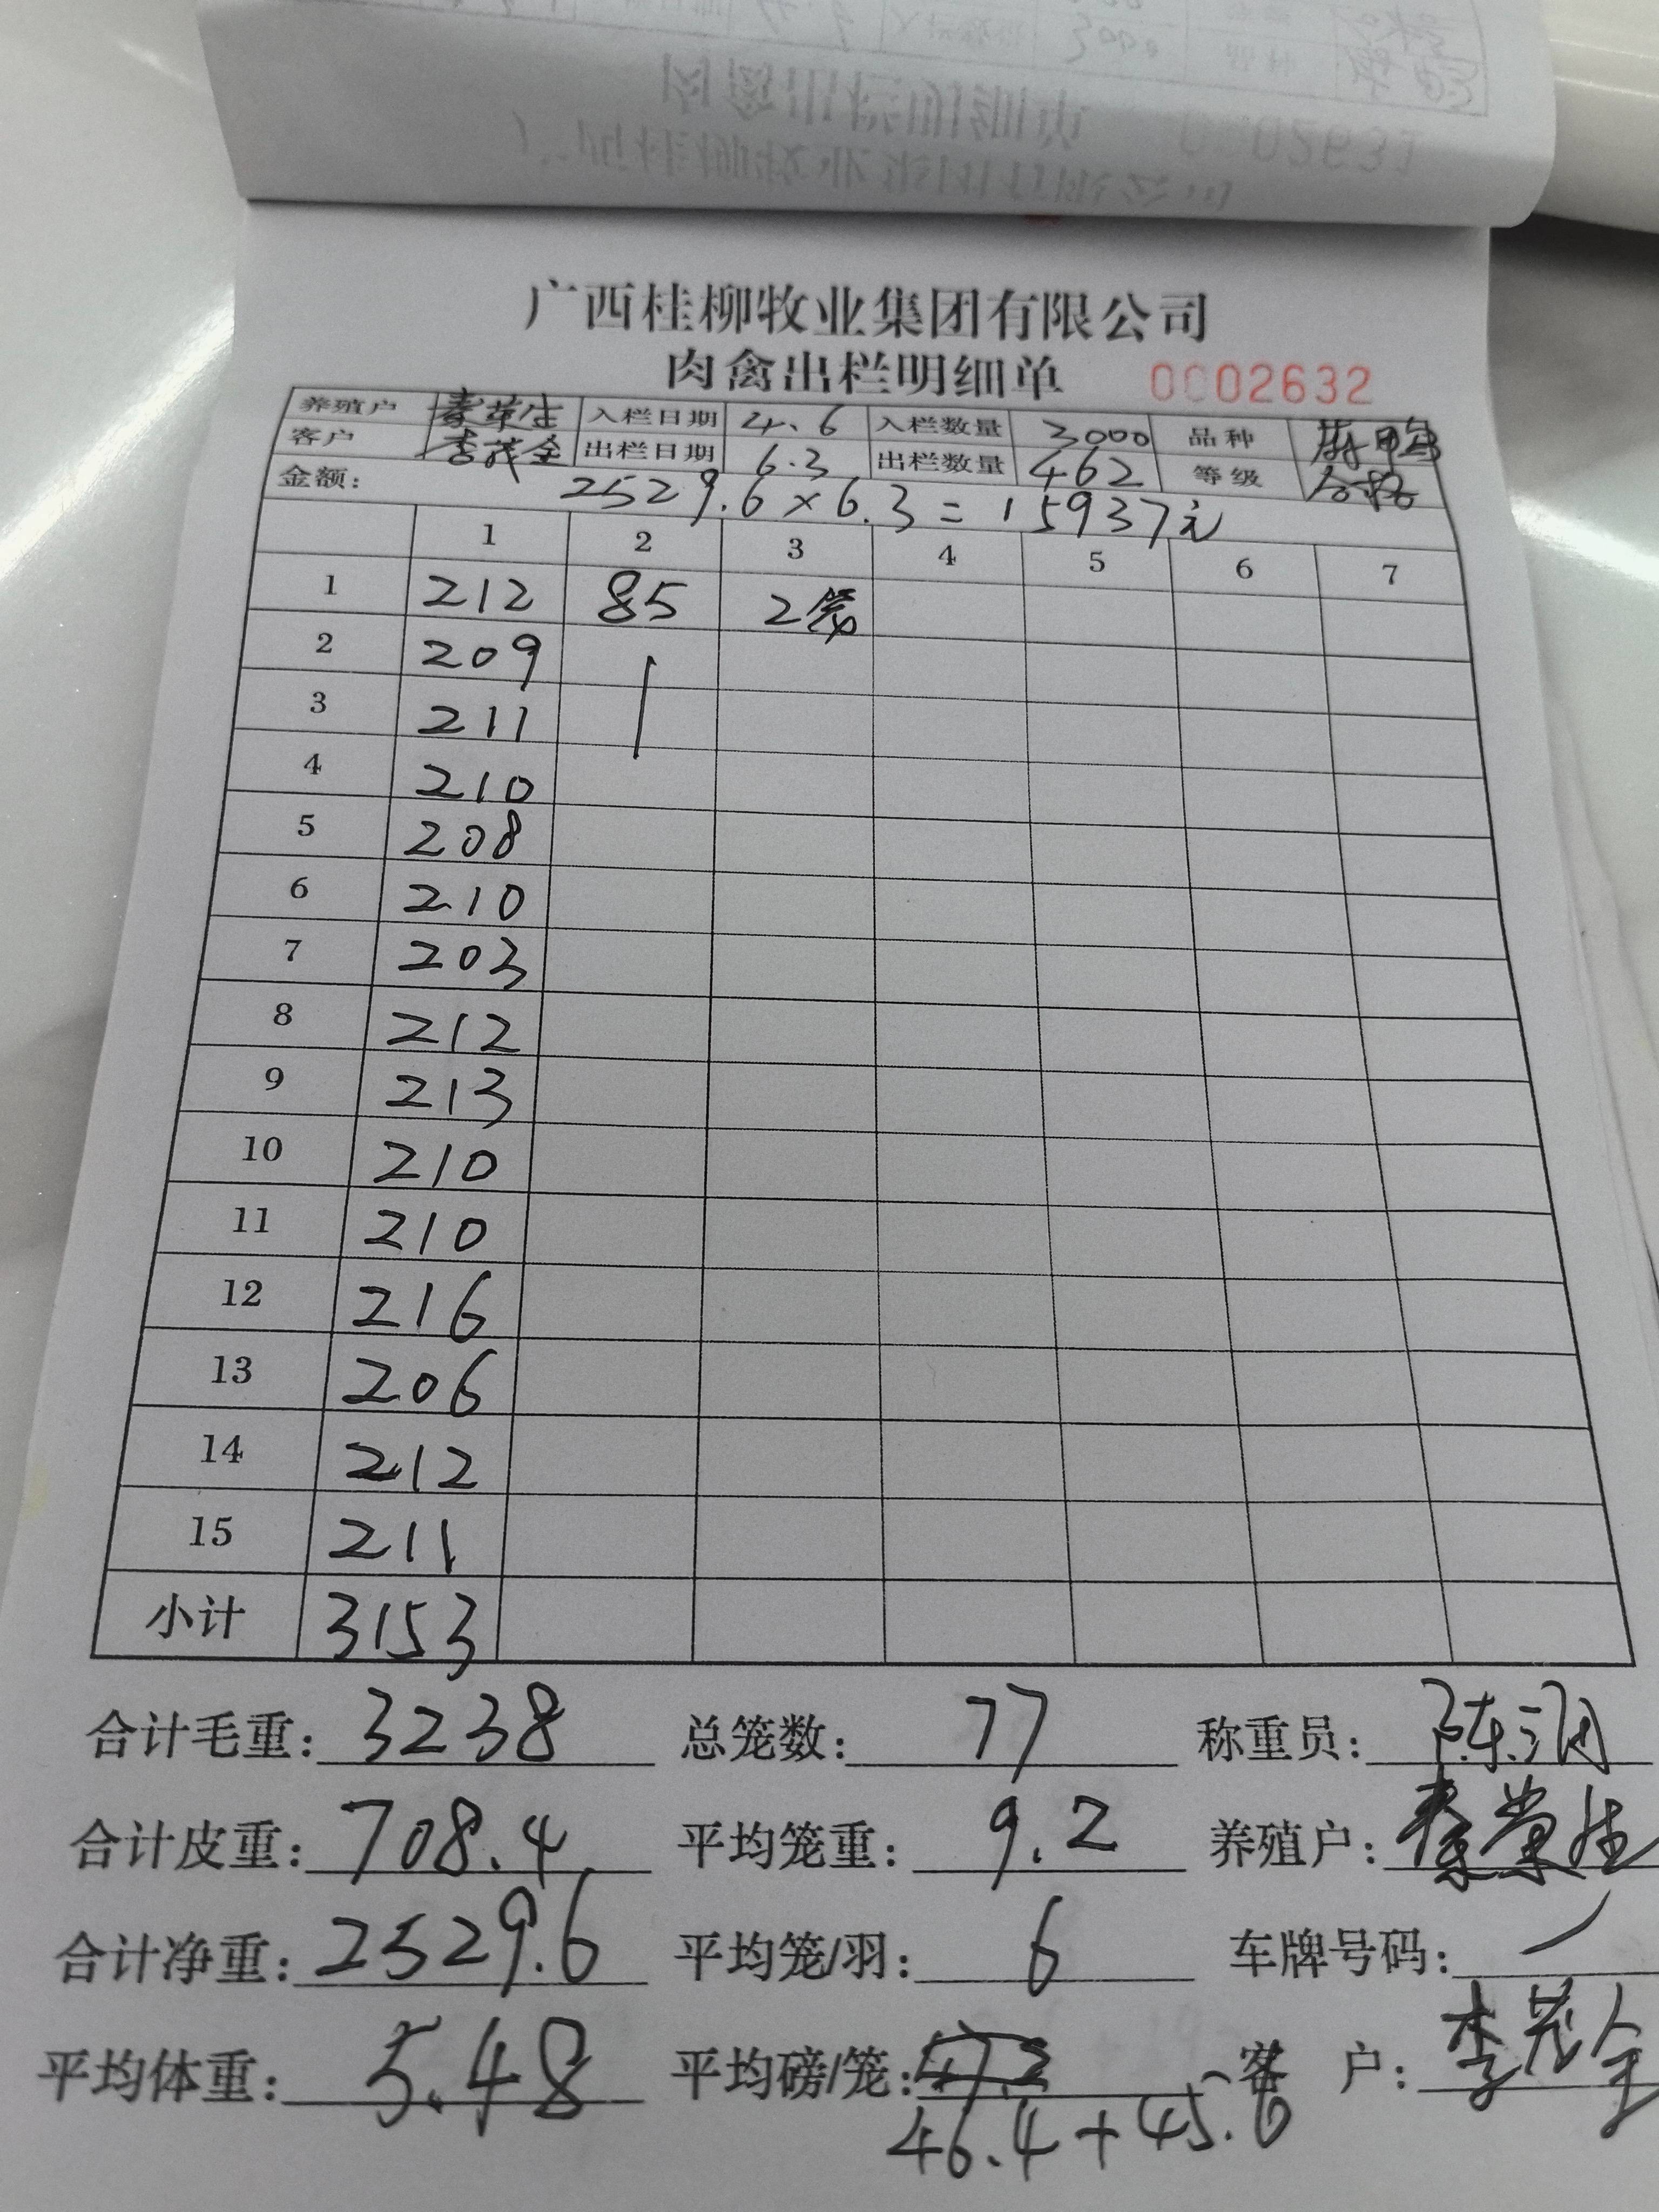 广西桂柳牧业集团有限公司
肉禽出栏明细单 0002632
养殖户 入栏日期 4.6 入栏数量 3000 品种 麻鸭
客户 李茂全 出栏日期 6.3 出栏数量 462 等级 合格
金额: 2529.6×6.3=15937元
1 2 3 4 5 6 7
1 212 85 2笼
2 209
3 211
4 210
5 208
6 210
7 203
8 212
9 213
10 210
11 210
12 216
13 206
14 212
15 211
小计 3153
合计毛重: 3238 总笼数: 77 称重员: 陈润
合计皮重: 708.4 平均笼重: 9.2 养殖户:
合计净重: 2529.6 平均笼/羽: 6 车牌号码:
平均体重: 5.48 平均磅/笼: 客 户: 李茂全
46.4+45.6